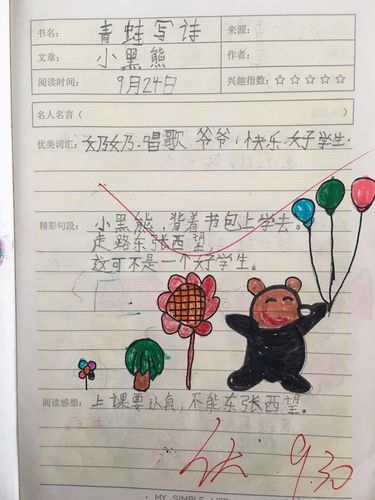 书名： 青蛙写诗 来源：
文章： 小黑熊 作者：
阅读时间： 9月24日 兴趣指数：☆☆☆☆☆
名人名言（
优美词汇：奶奶、唱歌、爷爷、快乐、好学生.
精彩句段： 小黑熊，背着书包上学去。
走路东张西望，
这可不是一个好学生。
阅读感想： 上课要认真，不能东张西望。
优 9.30
• MY SIMPLE LIFE